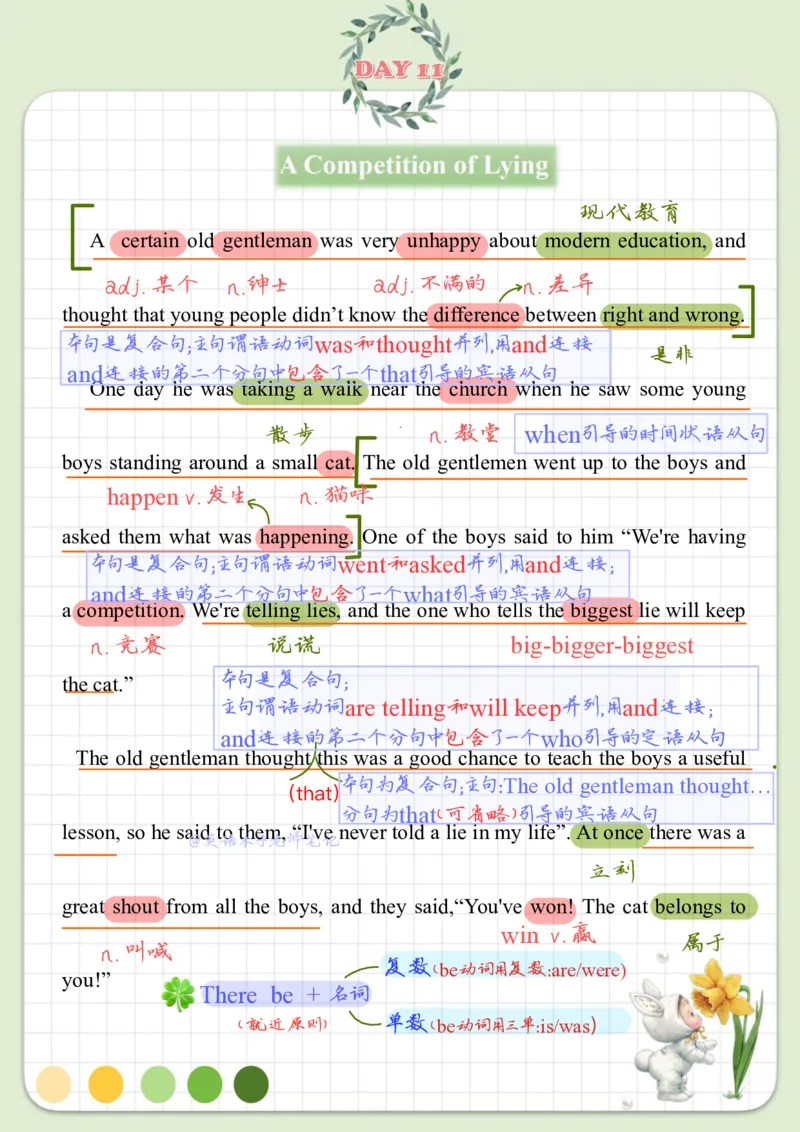 DAY 11
A Competition of Lying
现代教育
A certain old gentleman was very unhappy about modern education, and
adj. 某个 n.绅士 adj.不满的 n.差异
thought that young people didn't know the difference between right and wrong.
本句是复合句;主句谓语动词was和thought并列,用and连接
是非
and连接的第二个分句中包含了一个that引导的宾语从句
One day he was taking a walk near the church when he saw some young
散步 n.教堂 when引导的时间状语从句
boys standing around a small cat. The old gentlemen went up to the boys and
happen v.发生 n.猫咪
asked them what was happening. One of the boys said to him “We're having
本句是复合句;主句谓语动词went和asked并列,用and连接;
and连接的第二个分句中包含了一个what引导的宾语从句
a competition. We're telling lies, and the one who tells the biggest lie will keep
n.竞赛 说谎 big-bigger-biggest
the cat.”
本句是复合句;
主句谓语动词are telling和will keep并列,用and连接;
and连接的第二个分句中包含了一个who引导的定语从句
The old gentleman thought this was a good chance to teach the boys a useful
(that)
本句为复合句;主句:The old gentleman thought…
分句为that(可省略)引导的宾语从句
lesson, so he said to them, “I've never told a lie in my life”. At once there was a
立刻
great shout from all the boys, and they said,“You've won! The cat belongs to
n.叫喊 win v.赢 属于
you!”
复数(be动词用复数:are/were)
There be + 名词
(就近原则)
单数(be动词用三单:is/was)